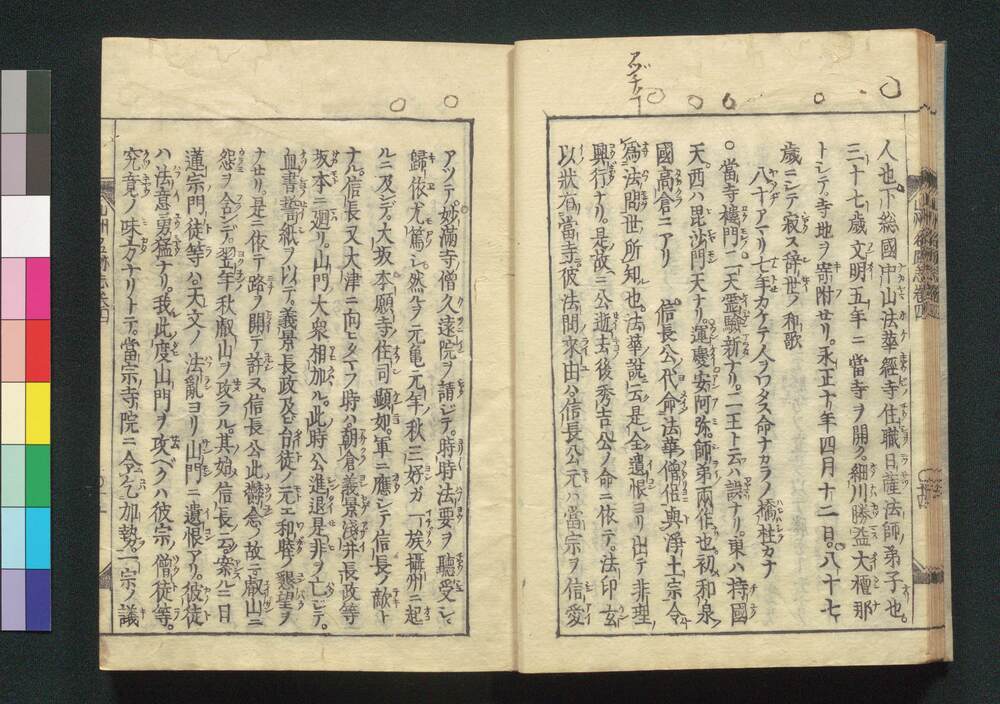 アヅチ
人也。下総國中山法華經寺住職日薩法師弟子也。
三十七歳文明五年ニ當寺ヲ開ク。細川勝益大檀那
トシテ。寺地ヲ寄附セリ。永正十年四月十二日。八十七
歳ニシテ寂ス辞世ノ和歌
八十アマリ七年カケテ人ヲワタス命ナカラノ橋柱カナ
○當寺樓門。二天霊驗新ナリ。二王ト云ハ誤ナリ。東ハ持國
天。西ハ毘沙門天ナリ。運慶安阿弥。師弟兩作也初和泉
國高倉ニアリ　信長公ノ代命法華僧侶與浄土宗令
為法問世ノ所知也法華說云是全遺恨ヨリ出テ非理ノ
興行ナリ。是故ニ公逝去ノ後秀吉公ノ命ニ依テ。法印玄
以狀有當寺彼法問来由ハ。信長公元ハ當宗ヲ信愛
アツテ妙滿寺ノ僧久遠院ヲ請シテ。時時法要ヲ聽受シ。
歸依尤篤シ。然ルヲ元亀元年秋。三好ガ一族攝州ニ起
ルニ及ンデ。大坂本願寺ノ住司顕如。軍ニ應シテ信長ノ敵ト
ナル。信長又大津ニ向ヒタマフ時ハ。朝倉義景淺井長政等
坂本ニ廻リ。山門ノ大衆相加ル。此時公進退是非ヲ亡シテ。
血書誓紙ヲ以テ。義景長政及ビ台徒ノ元エ和睦ノ懇望ヲ
ナセリ。是ニ依テ路ヲ開テ許ス。信長公此欝念ノ故ニ。叡山ニ
怨ヲ含ンデ。翌年秋叡山ヲ攻ラル。其始信長ノ云。案ルニ日
蓮宗門ノ徒等ハ。天文ノ法亂ヨリ山門ニ遺恨アリ。彼徒
ハ法意勇猛ナリ。我此度山門ヲ攻ベクハ彼宗ノ僧徒等。
究竟ノ味方ナリトテ。當宗寺院ニ令乞加勢。一宗ノ議